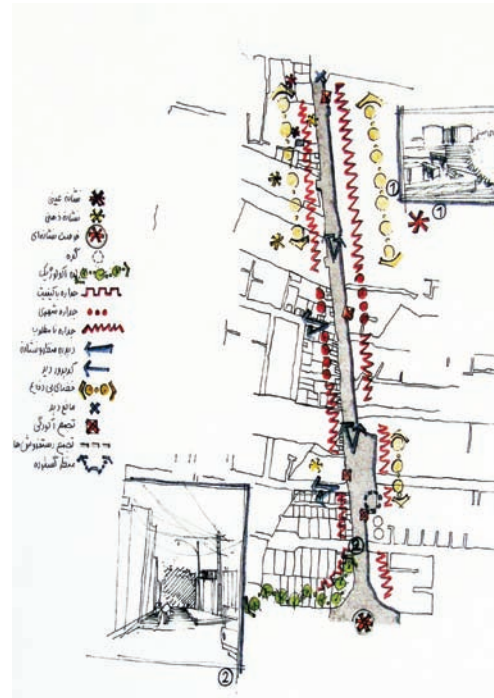 نشانه عینی
نشانه ذهنی
فرصت نشانه‌ای
گره
لبه اکولوژیک
جداره باکیفیت
جداره شهری
جداره نامطلوب
دید به منظر و نشانه
کریدور دید
فضای بی دفاع
مانع دید
تجمع آلودگی
تجمع دستفروش‌ها
منظر گسترده
①
①
②
②